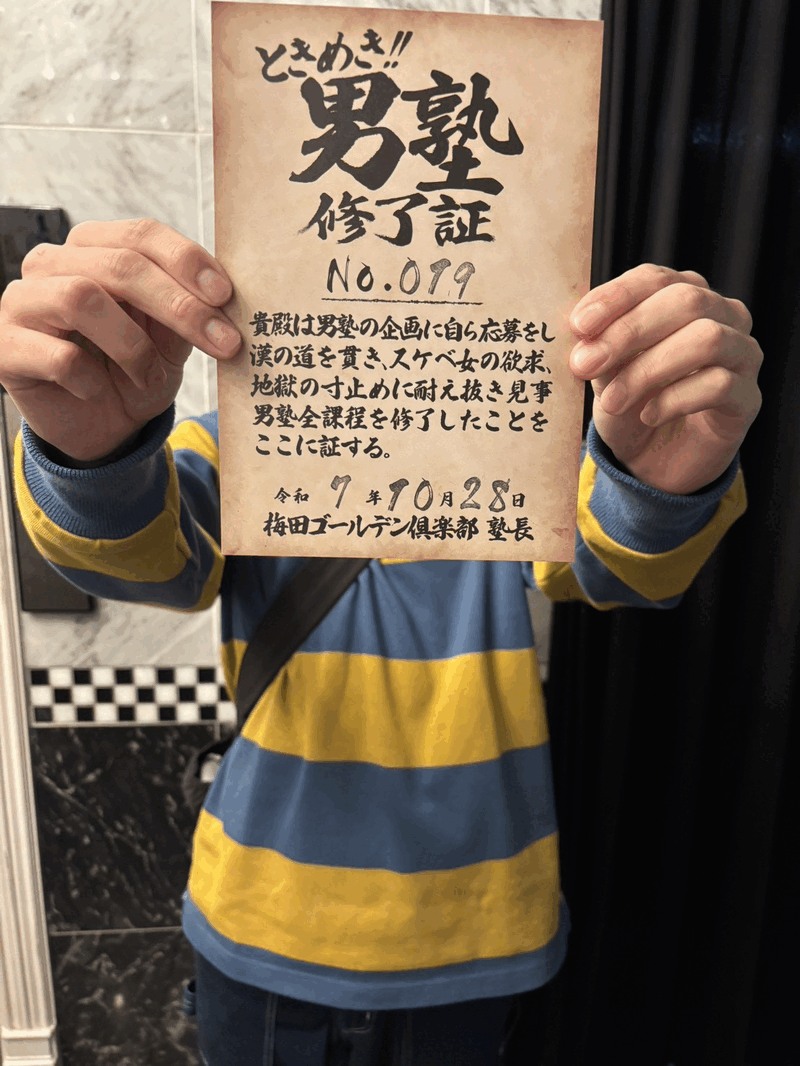 ときめき!!
男塾
修了証
No.079
貴殿は男塾の企画に自ら応募をし
漢の道を貫き、スケベ女の欲求、
地獄の寸止めに耐え抜き見事
男塾全課程を修了したことを
ここに証する。
令和 7 年 10 月 28 日
梅田ゴールデン倶楽部 塾長